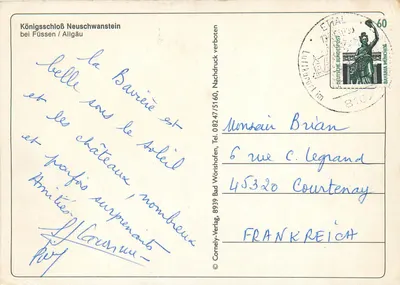 Königsschloß Neuschwanstein
bei Füssen / Allgäu
la Bavière est
belle sous le soleil
et les châteaux, nombreux
et parfois surprenants
Amitiés
© Comely-Verlag, 8939 Bad Wörishofen, Tel. 08247/5160, Nachdruck verboten
60
Monsieur Brian
6 rue C. Legrand
45320 Courtenay
FRANKREICH